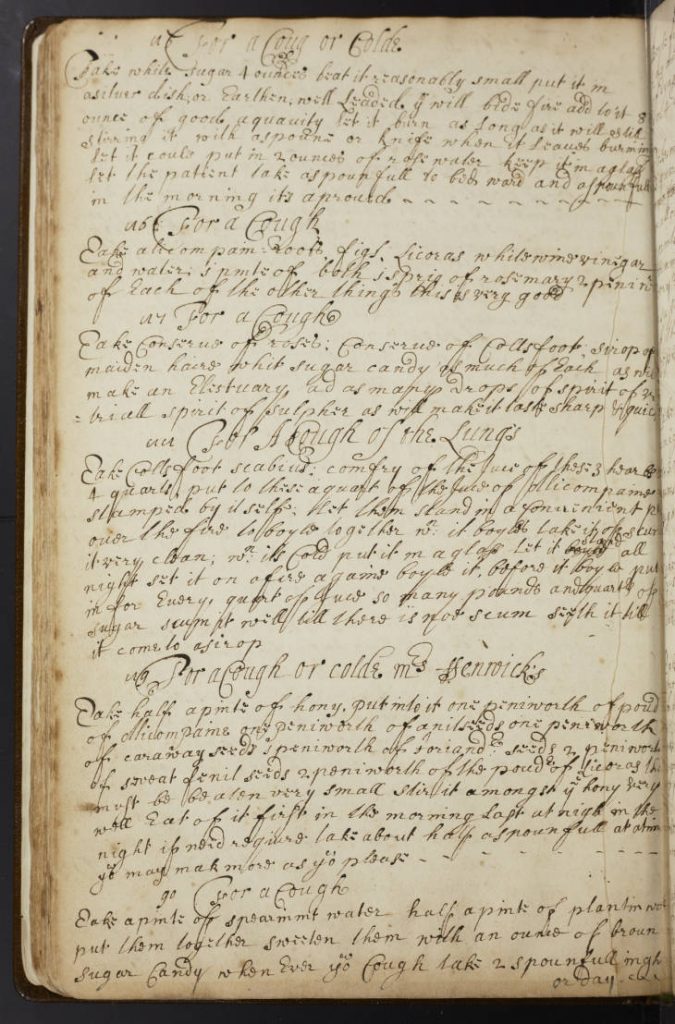 For a Coug or Colde
Take white sugar 4 ounces beat it reasonably small put it in
a silver dish, or Earthen, well Leaded yt will bide fire add to it 8
ounce of good aquavity let it burn as long as it will still
stiring it with a spoune or knife when it leaves burning
let it could put in 2 ounces of rose water keep it in a glass
let the patient take a spounfull to beds ward and a spounfull
in the morning its aproved
For a Cough
Take alicompam roots figs, Licoras white wine vinegar
and water: s pinte of both s sprig of rosemary 2 peni
of Each of the other things this is very good
For a Cough
Take Conserve of roses: Conserve of Colts foot, sirop of
maiden haire whit sugar candy as much of Each as
make an Elestuary, ad as many drops of spirit of
triall spirit of sulpher as will make it taste sharp &
For A Cough of the Lungs
Take Colts foot scabius: comfry of the juce of these 3 hearbs
4 quarts, put to these a quart of the juce of alicompame
stamped by it selfe; let them stand in a convenient
over the fire to boyle together wn: it boyles take it of scum
it very clean; wn: its Cold put it in a glass let it all
night set it on a fire againe boyle it, before it boyle put
in for Every, quart of juce so many pounds and quarts of
sugar scum it well till there is noe scum seeth it till
it come to a sirop
For a Cough or colde mrs Henwicks
Take half a pinte of hony, put into it one peniworth of poud
of Alicompame one peniworth of anilseeds one peniworth
of caraway seeds peniworth of Coriandr seeds 2 peniworth
of sweat fenil seeds 2 peniworth of the poudr of Licoras this
must be beaten very small stir it amongst ye hony very
well Eat of it first in the morning Last at nigh in the
night if need require take about half a spounfull at a time
yo may mak more as yo please
90 For a Cough
Take a pinte of spearmint water half a pinte of plantin
put them together sweeten them with an ounce of broun
sugar Candy when Ever yo Cough take 2 spounfull nigh
or day